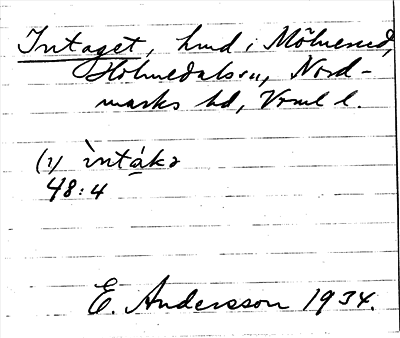 Intaget, hmd i Mölnerud,
Holmedals sn, Nord-
marks hd, Vrml l.
(1) ìntákə
48:4
E. Andersson 1934.